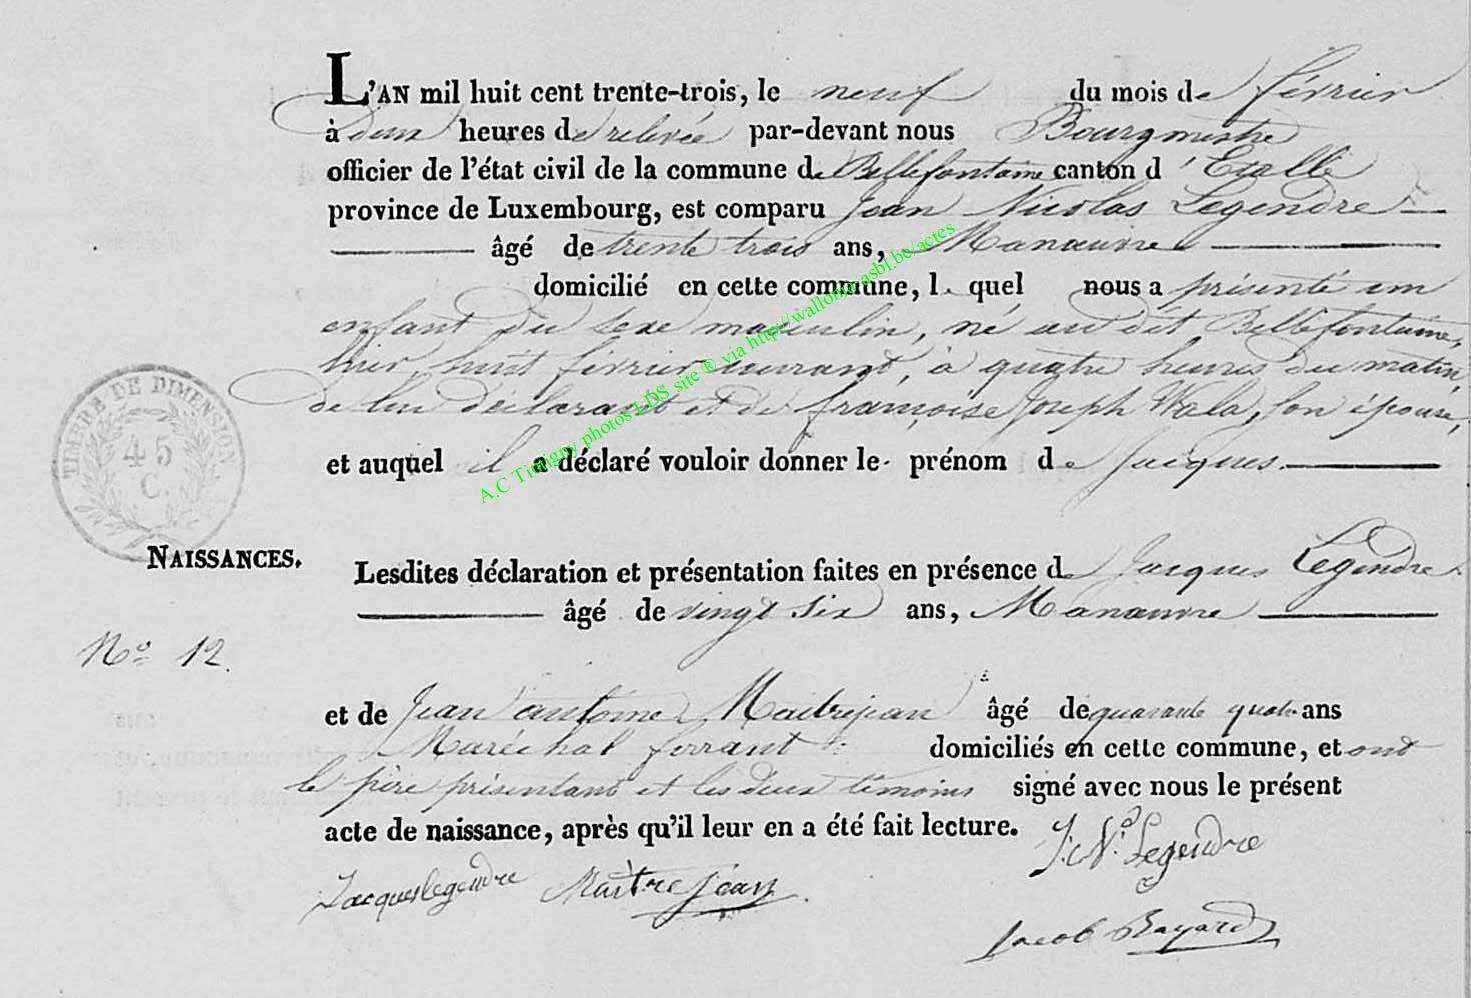 L'AN mil huit cent trente-trois, le neuf du mois de février
à deux heures de relevée par-devant nous Bourgmestre
officier de l'état civil de la commune de Bellefontaine canton d'Etalle
province de Luxembourg, est comparu Jean Nicolas Legendre
âgé de trente trois ans, Manœuvre
domicilié en cette commune, le quel nous a présenté un
enfant du sexe masculin, né au dit Bellefontaine,
hier, huit février courant, à quatre heures du matin,
de lui déclarant et de françoise Joseph Wala, son épouse,
et auquel il a déclaré vouloir donner le prénom de Jacques.
TIMBRE DE DIMENSION
45
C.
NAISSANCES.
Lesdites déclaration et présentation faites en présence de Jacques Legendre
âgé de vingt six ans, Manœuvre
No 12.
et de Jean antoine Maitrejean âgé de quarante quatre ans
Maréchal ferrant domiciliés en cette commune, et ont
le père présentant et les deux témoins signé avec nous le présent
acte de naissance, après qu'il leur en a été fait lecture.
J: N: Legendre
Jacques legendre Maitre jean
Jacob Bayard
A.C Tintigny photos LDS site ® via http://wallonia-asbl.be/actes